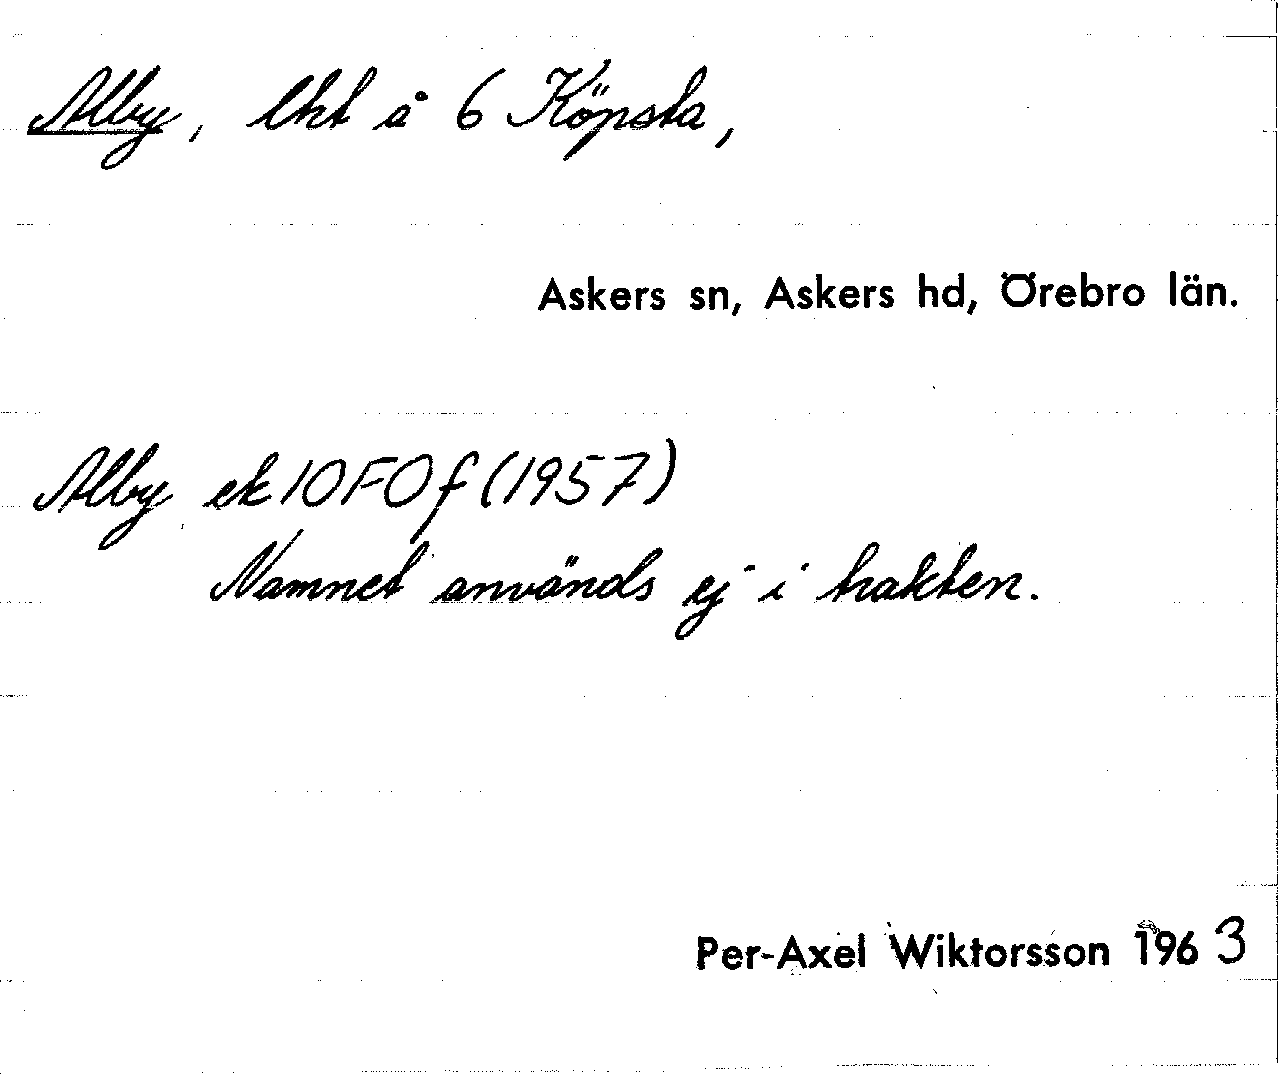 Alby, lht å 6 Köpsta,
Askers sn, Askers hd, Örebro län.
Alby ek 10F0f (1957)
Namnet används ej i trakten.
Per-Axel Wiktorsson 1963